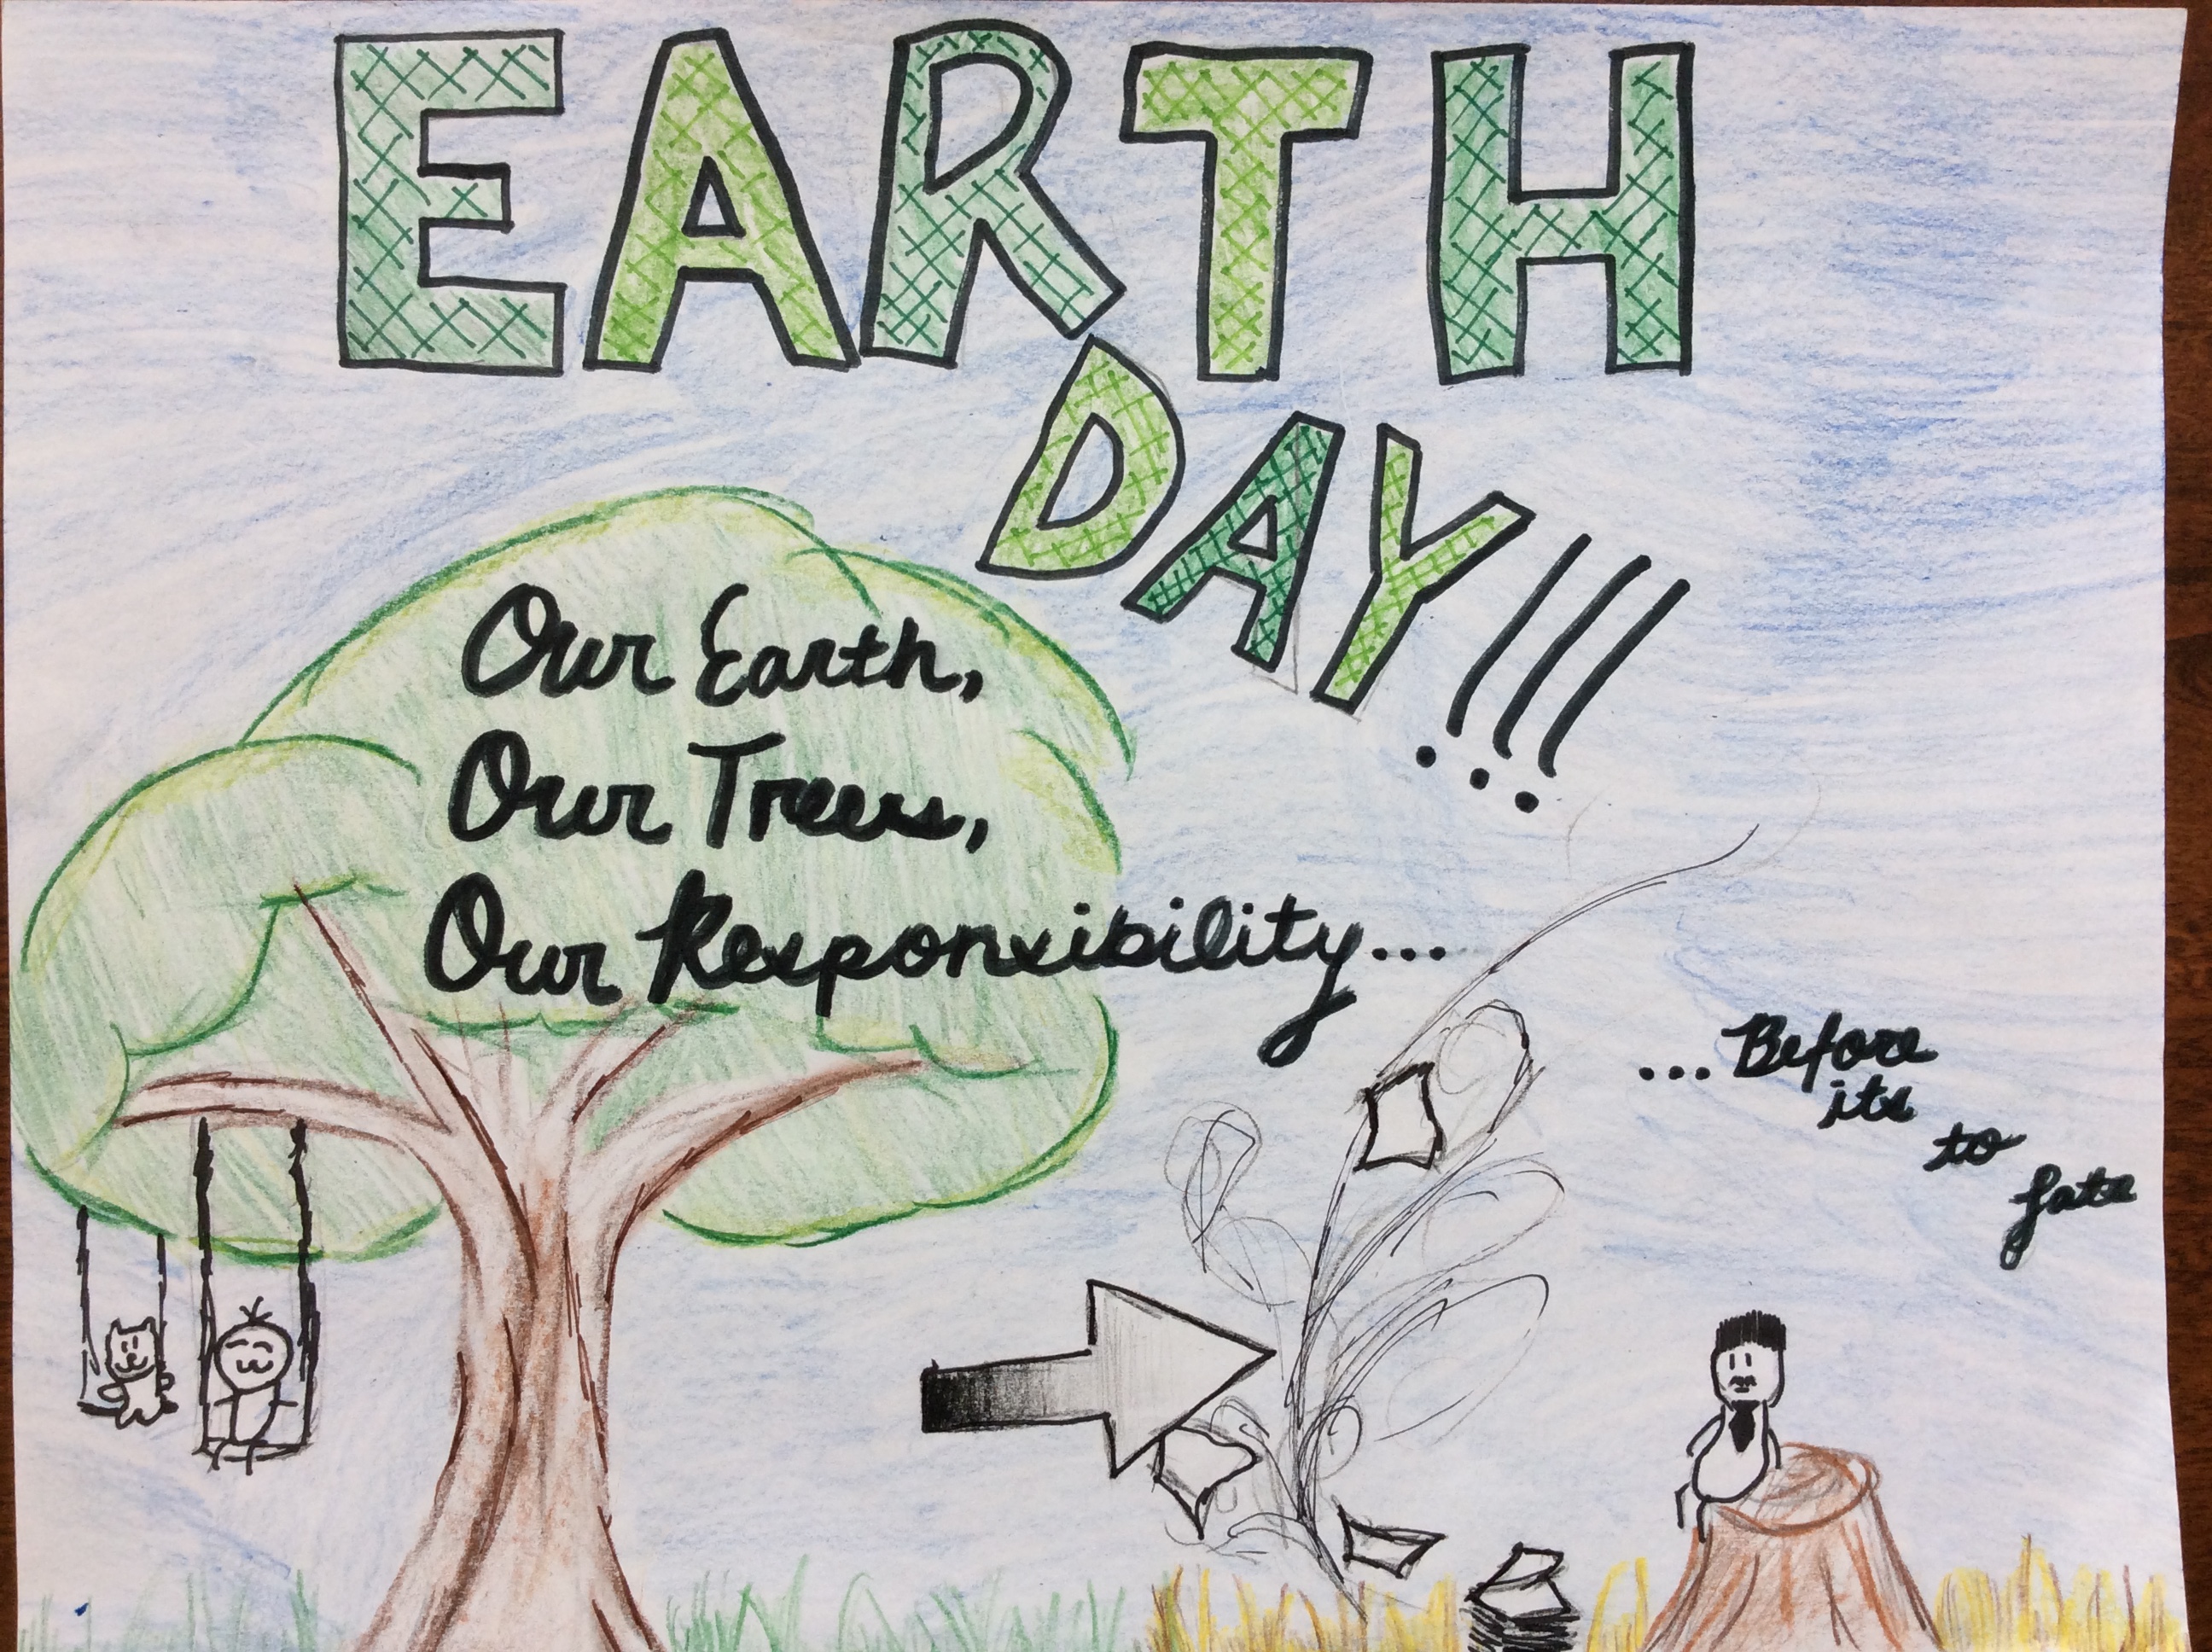 EARTH
DAY!!!
Our Earth,
Our Trees,
Our Responsibility...
...Before
its
to
late